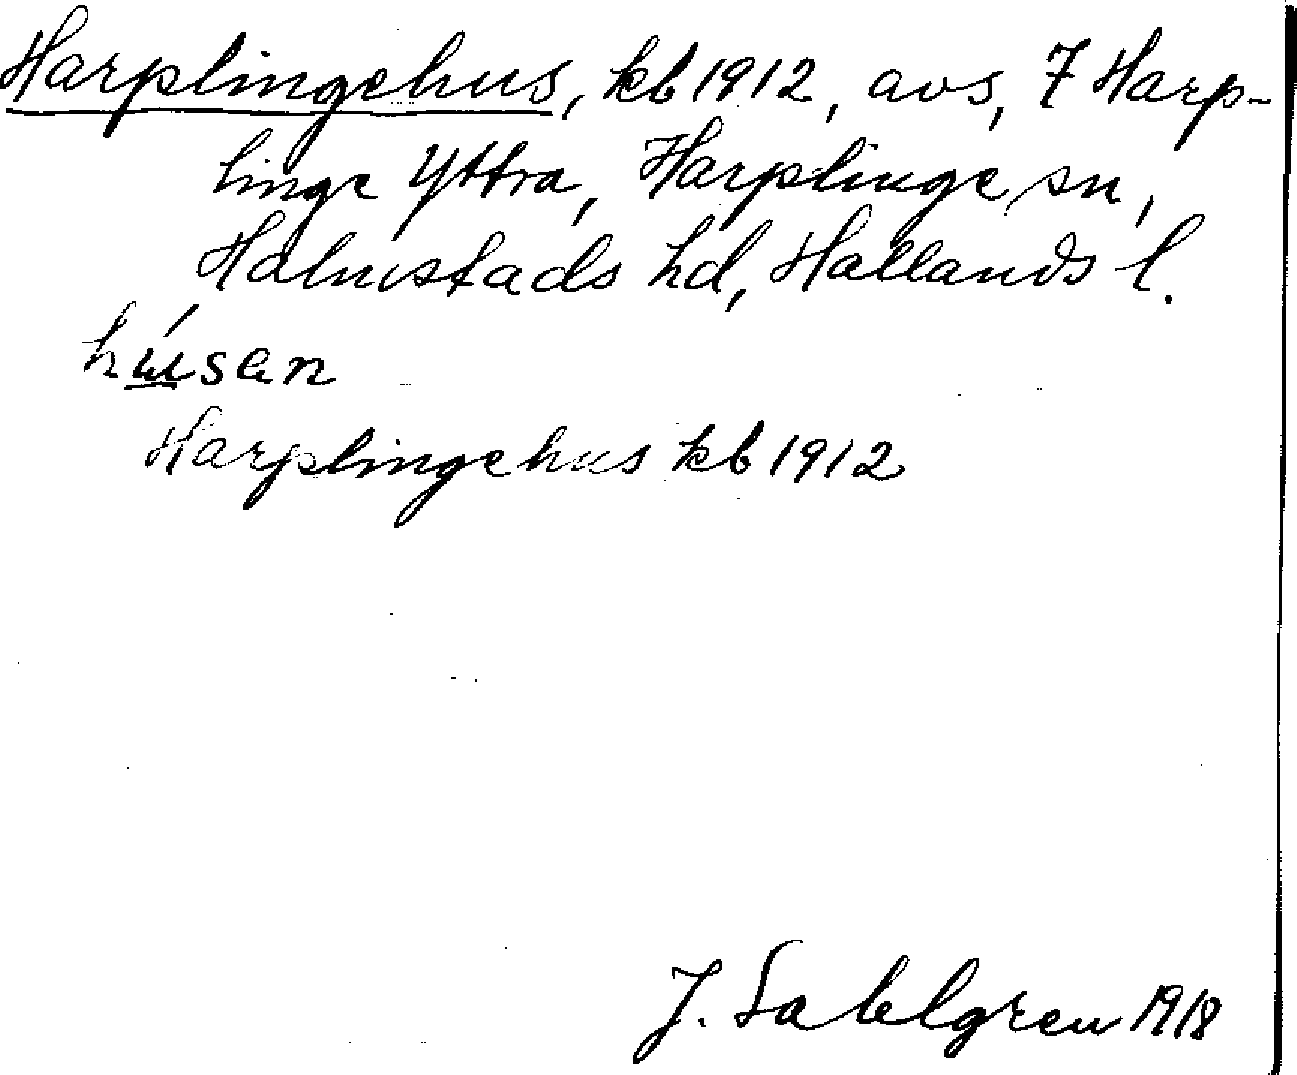 Harplingehus, kb 1912, avs, 7 Harp-
linge Yttra, Harplinge sn,
Halmstads hd, Hallands l.
húsen
Harplingehus kb 1912
J. Sahlgren 1918